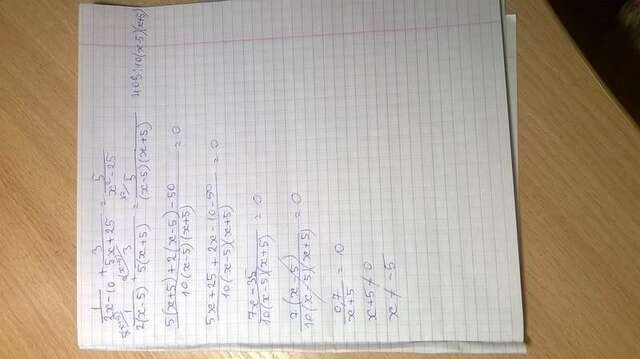 1/(2x-10) + 3/(5x+25) = 5/(x²-25)
1/(2(x-5)) + 3/(5(x+5)) = 5/((x-5)(x+5)) НОЗ: 10(x-5)(x+5)
(5(x+5)+2(x-5)-50)/(10(x-5)(x+5)) = 0
(5x+25+2x-10-50)/(10(x-5)(x+5)) = 0
(7x-35)/(10(x-5)(x+5)) = 0
7(x-5)/(10(x-5)(x+5)) = 0
0,7/(x+5) = 0
x+5≠0
x≠-5